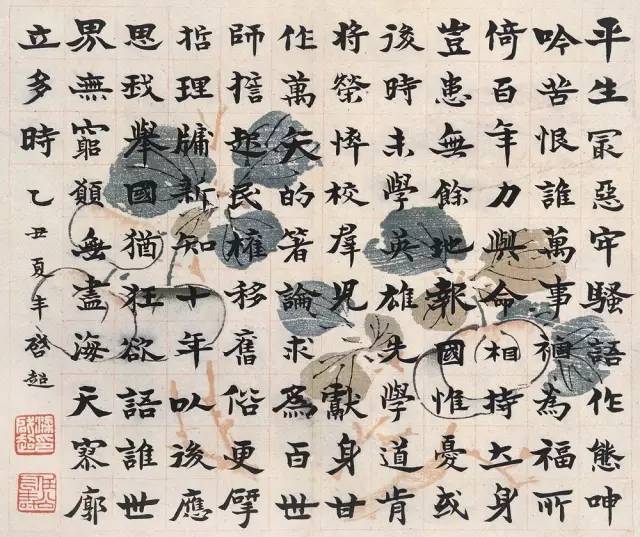 平生冣惡牢騷語作態呻
吟苦恨誰萬事禍為福所
倚百年力與命相持立身
豈患無餘地報國惟憂或
後時未學英雄先學道肯
將榮悴校羣兒獻身甘
作萬矢的著論求為百世
師誓起民權移舊俗更擘
哲理牖新知十年以後應
思我舉國猶狂欲語誰世
界無窮願無盡海天寥廓
立多時 乙丑夏啓超